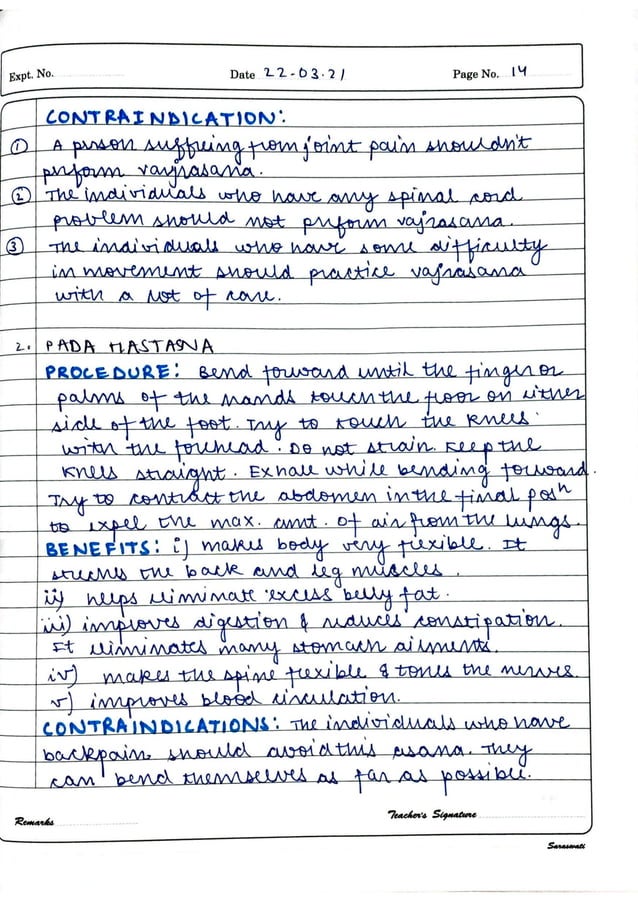 Expt. No.
Date 22-03-21
Page No. 14
CONTRAINDICATION:
① A person suffering from joint pain shouldn't
perform vajrasana.
② The individuals who have any spinal cord
problem should not perform vajrasana.
③ The individuals who have some difficulty
in movement should practice vajrasana
with a lot of care.
2. PADA HASTASNA
PROCEDURE: Bend forward until the finger or
palms of the hands touch the floor on either
side of the foot. Try to touch the knees
with the forehead. Do not strain. Keep the
knees straight. Exhale while bending forward.
Try to contract the abdomen in the final posn
to expel the max. amt. of air from the lungs.
BENEFITS: i) makes body very flexible. It
streches the back and leg muscles.
ii) helps eliminate excess belly fat.
iii) improves digestion & reduces constipation.
It eliminates many stomach ailments.
iv) makes the spine flexible & tones the nerves.
v) improves blood circulation.
CONTRAINDICATIONS: The individuals who have
backpain should avoid this asana. They
can bend themselves as far as possible.
Remarks
Teacher's Signature
Saraswati